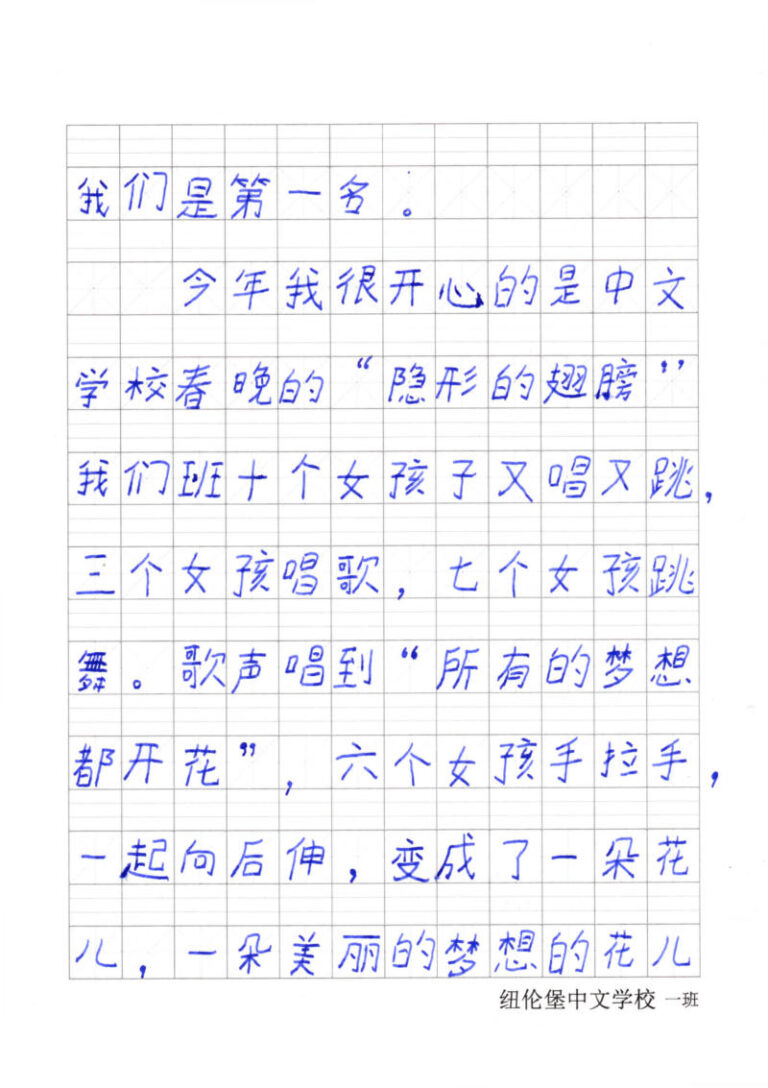 我们是第一名。
今年我很开心的是中文
学校春晚的“隐形的翅膀”
我们班十个女孩子又唱又跳，
三个女孩唱歌，七个女孩跳
舞。歌声唱到“所有的梦想
都开花”，六个女孩手拉手，
一起向后伸，变成了一朵花
儿，一朵美丽的梦想的花儿
纽伦堡中文学校 一班